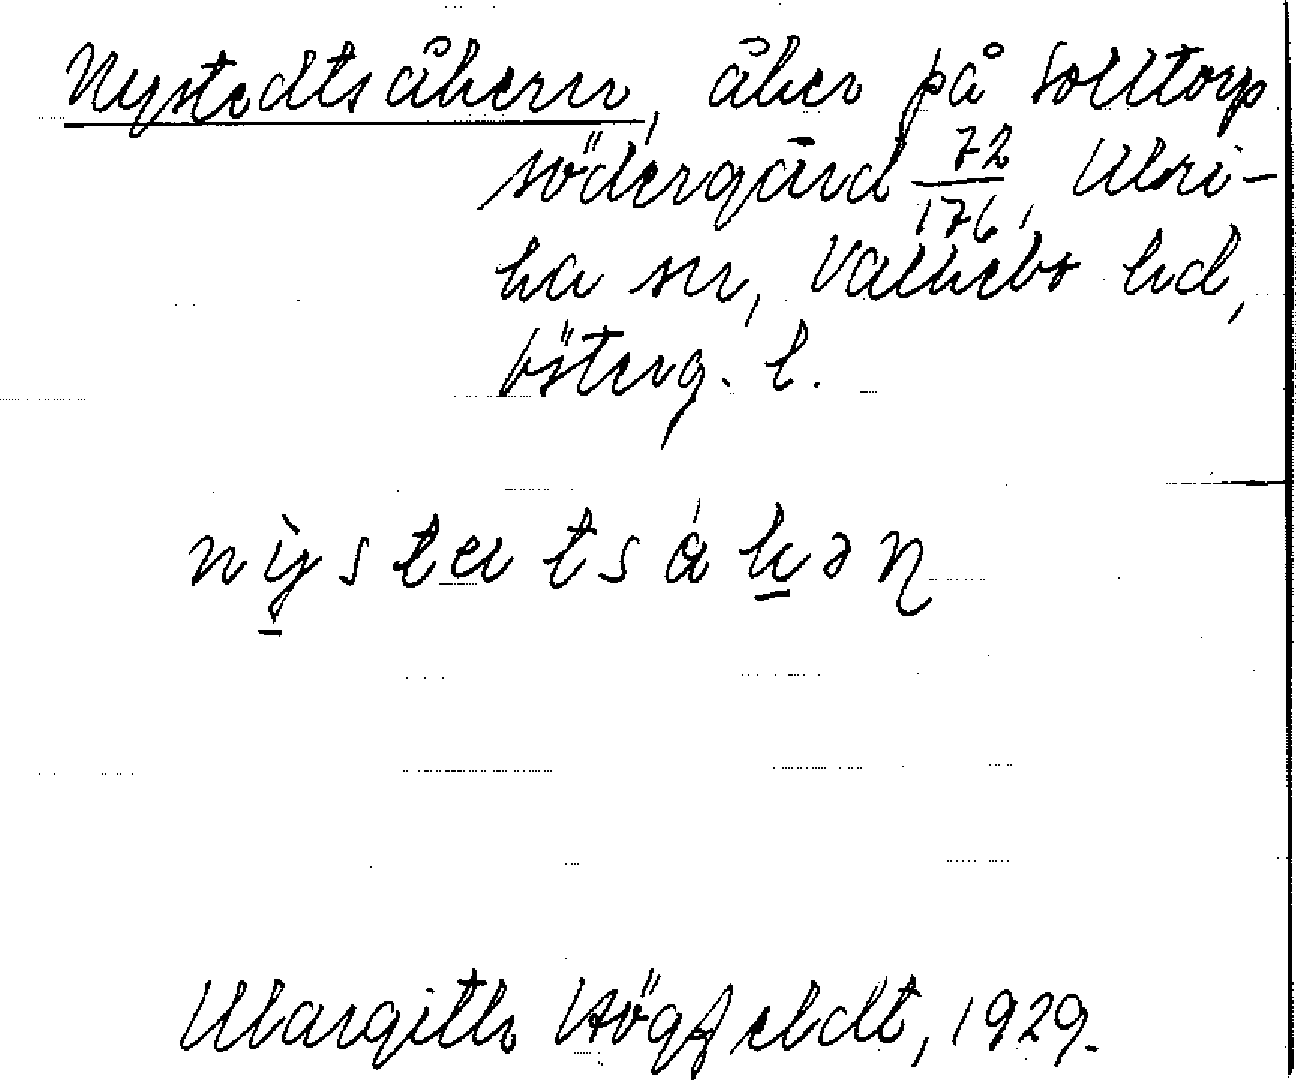 Nystedtsåkern, åker på Solltorp
södergård 72/176, Ulri-
ka sn, Valkebo hd,
Österg. l.
nỳstetsákən
Margith Högfeldt, 1929.